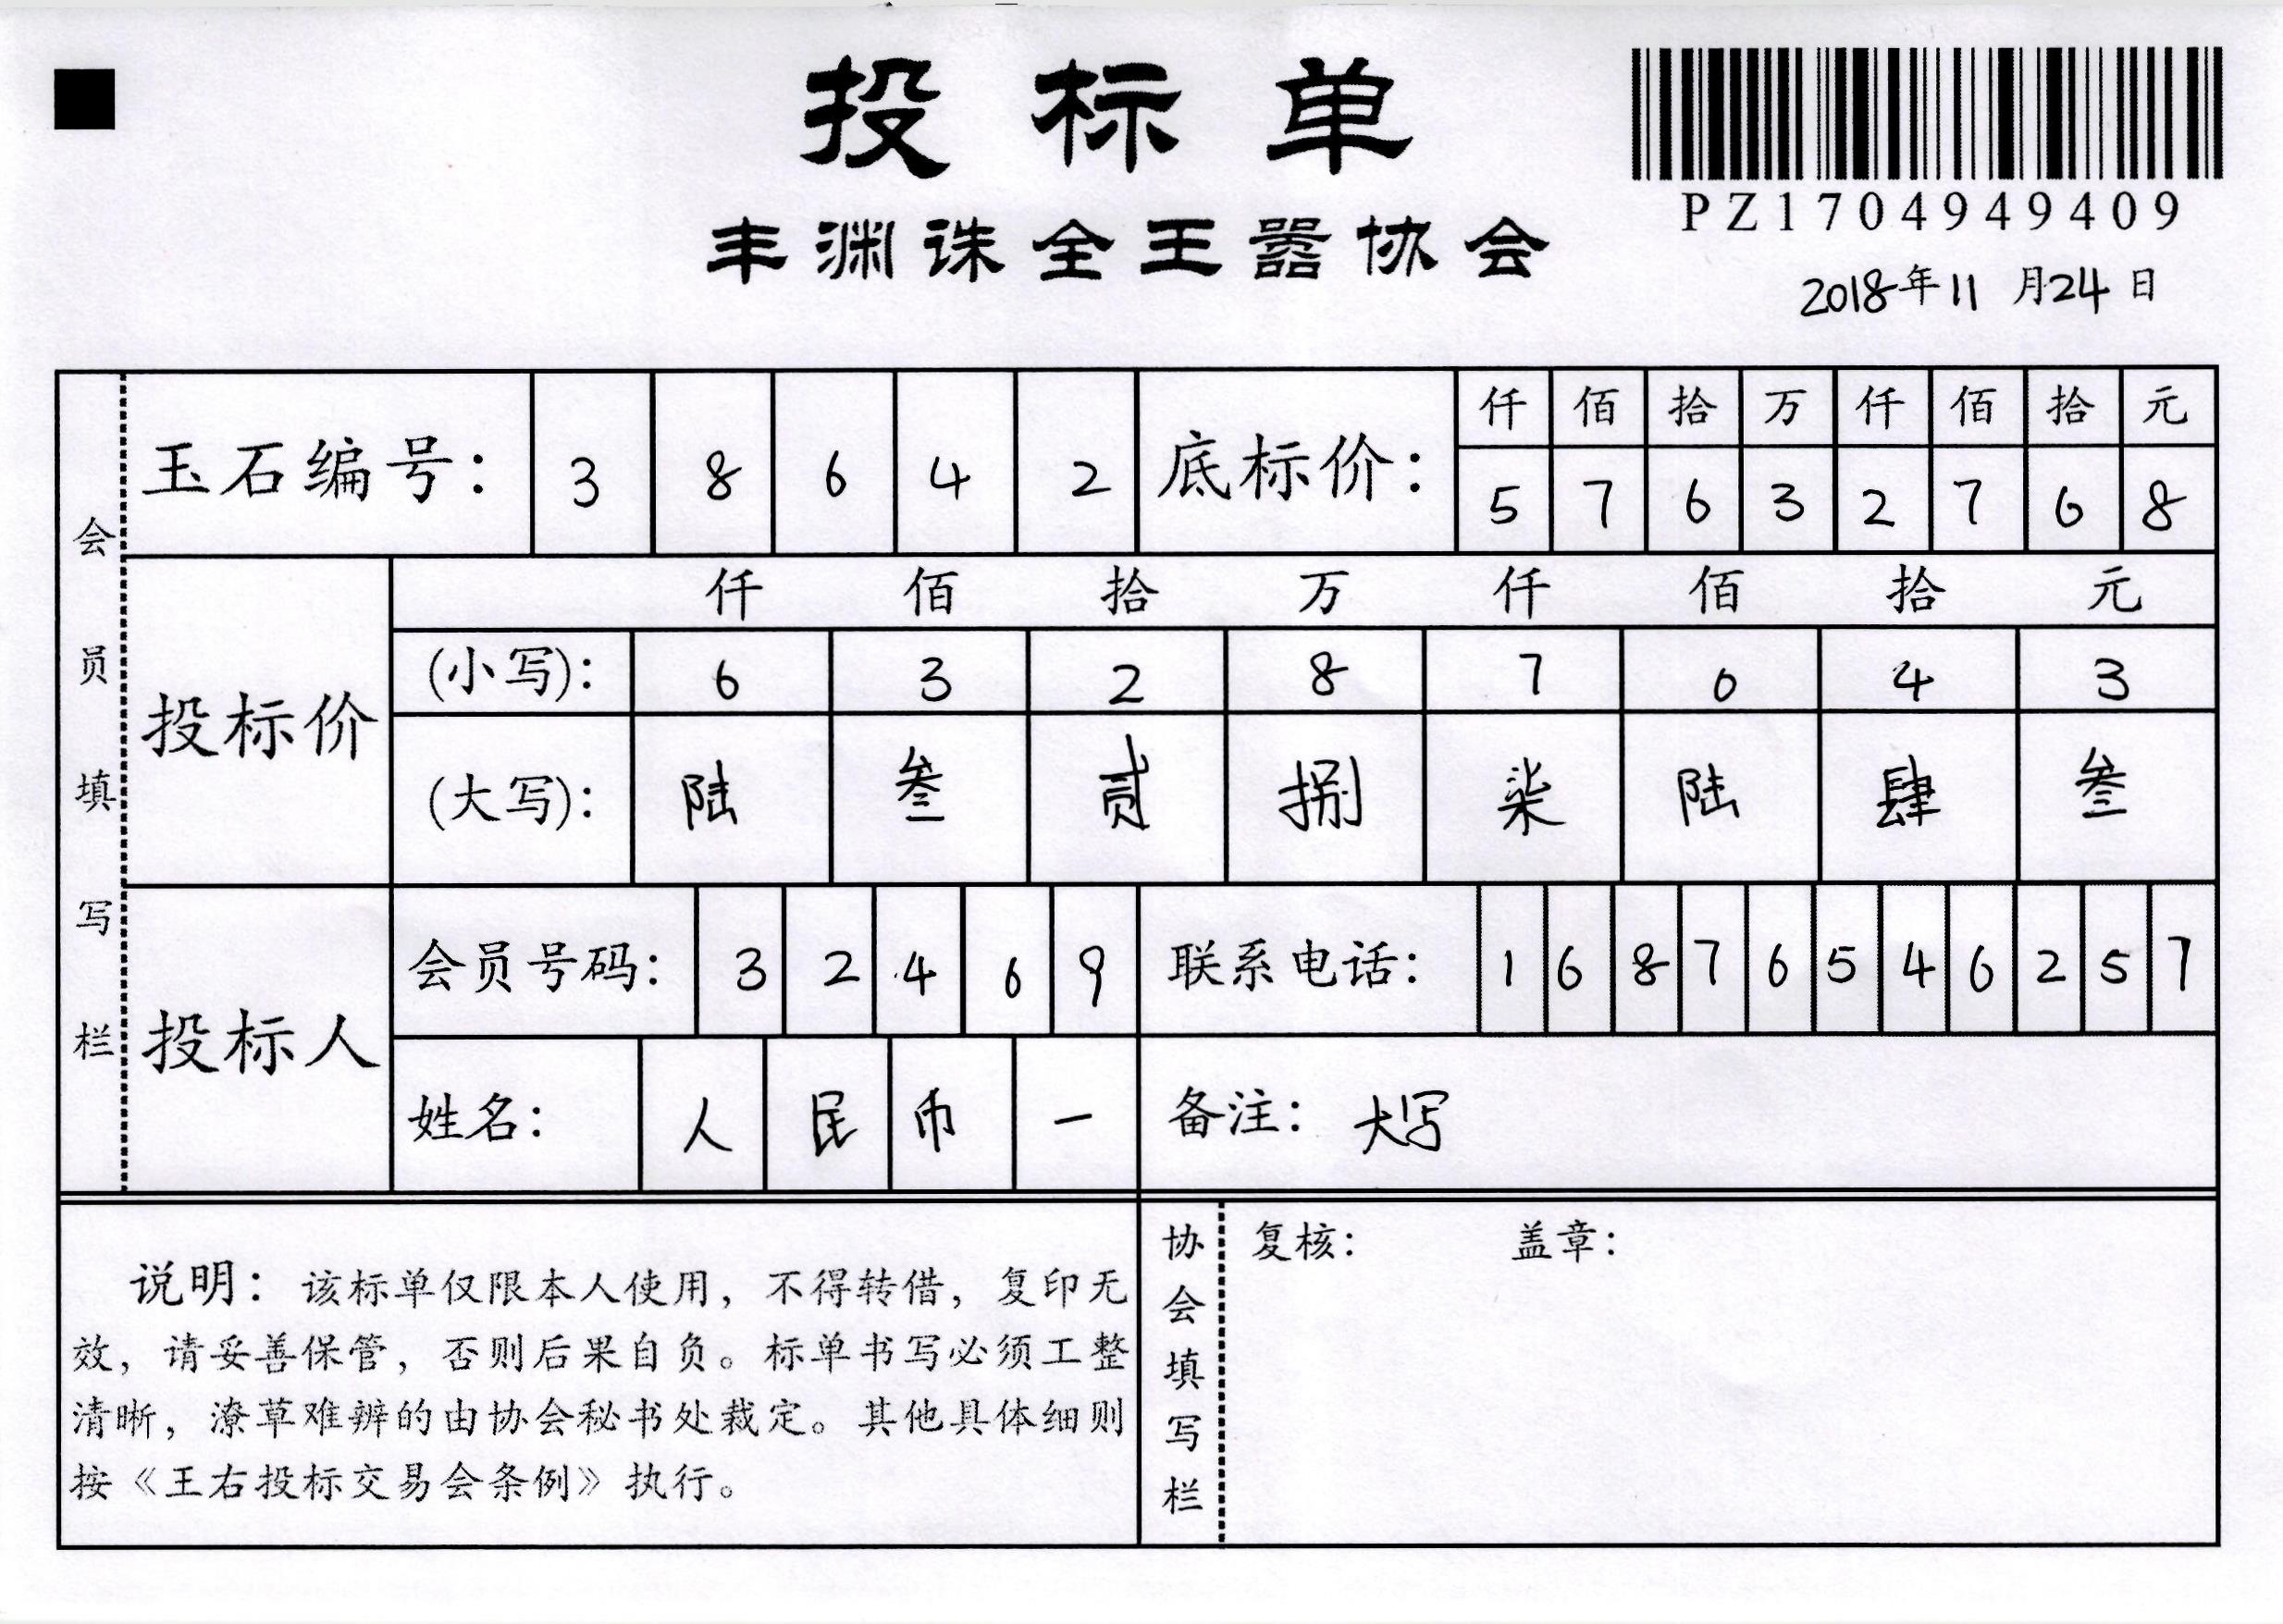 投标单
PZ1704949409
丰渊诛全王器协会
2018年11月24日
会员填写栏
玉石编号： 3 8 6 4 2
底标价： 仟 佰 拾 万 仟 佰 拾 元
5 7 6 3 2 7 6 8
投标价
仟 佰 拾 万 仟 佰 拾 元
(小写)： 6 3 2 8 7 0 4 3
(大写)： 陆 叁 贰 捌 柒 陆 肆 叁
投标人
会员号码： 3 2 4 6 9
联系电话： 1 6 8 7 6 5 4 6 2 5 7
姓名： 人 民 币 一
备注： 大写
说明：该标单仅限本人使用，不得转借，复印无
效，请妥善保管，否则后果自负。标单书写必须工整
清晰，潦草难辨的由协会秘书处裁定。其他具体细则
按《王右投标交易会条例》执行。
协会填写栏
复核： 盖章：